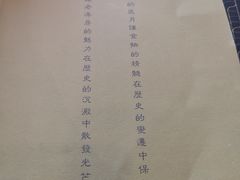 的歲月讓食物的精髓在歷史的變遷中保
老湯居的魅力在歷史的沉澱中散發光芒